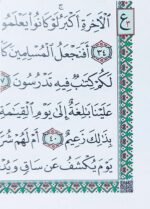 ع ٣
ٱلْأَخِرَةِ أَكْبَرُ لَوْ كَانُوا۟ يَعْلَمُو
٣٤ أَفَنَجْعَلُ ٱلْمُسْلِمِينَ كَا
لَكُمْ كِتَٰبٌ فِيهِ تَدْرُسُونَ
عَلَيْنَا بَٰلِغَةٌ إِلَىٰ يَوْمِ ٱلْقِيَٰمَةِ
بِذَٰلِكَ زَعِيمٌ ٤٠ أَمْ لَهُمْ شُرَ
يَوْمَ يُكْشَفُ عَن سَاقٍ وَيُدْ